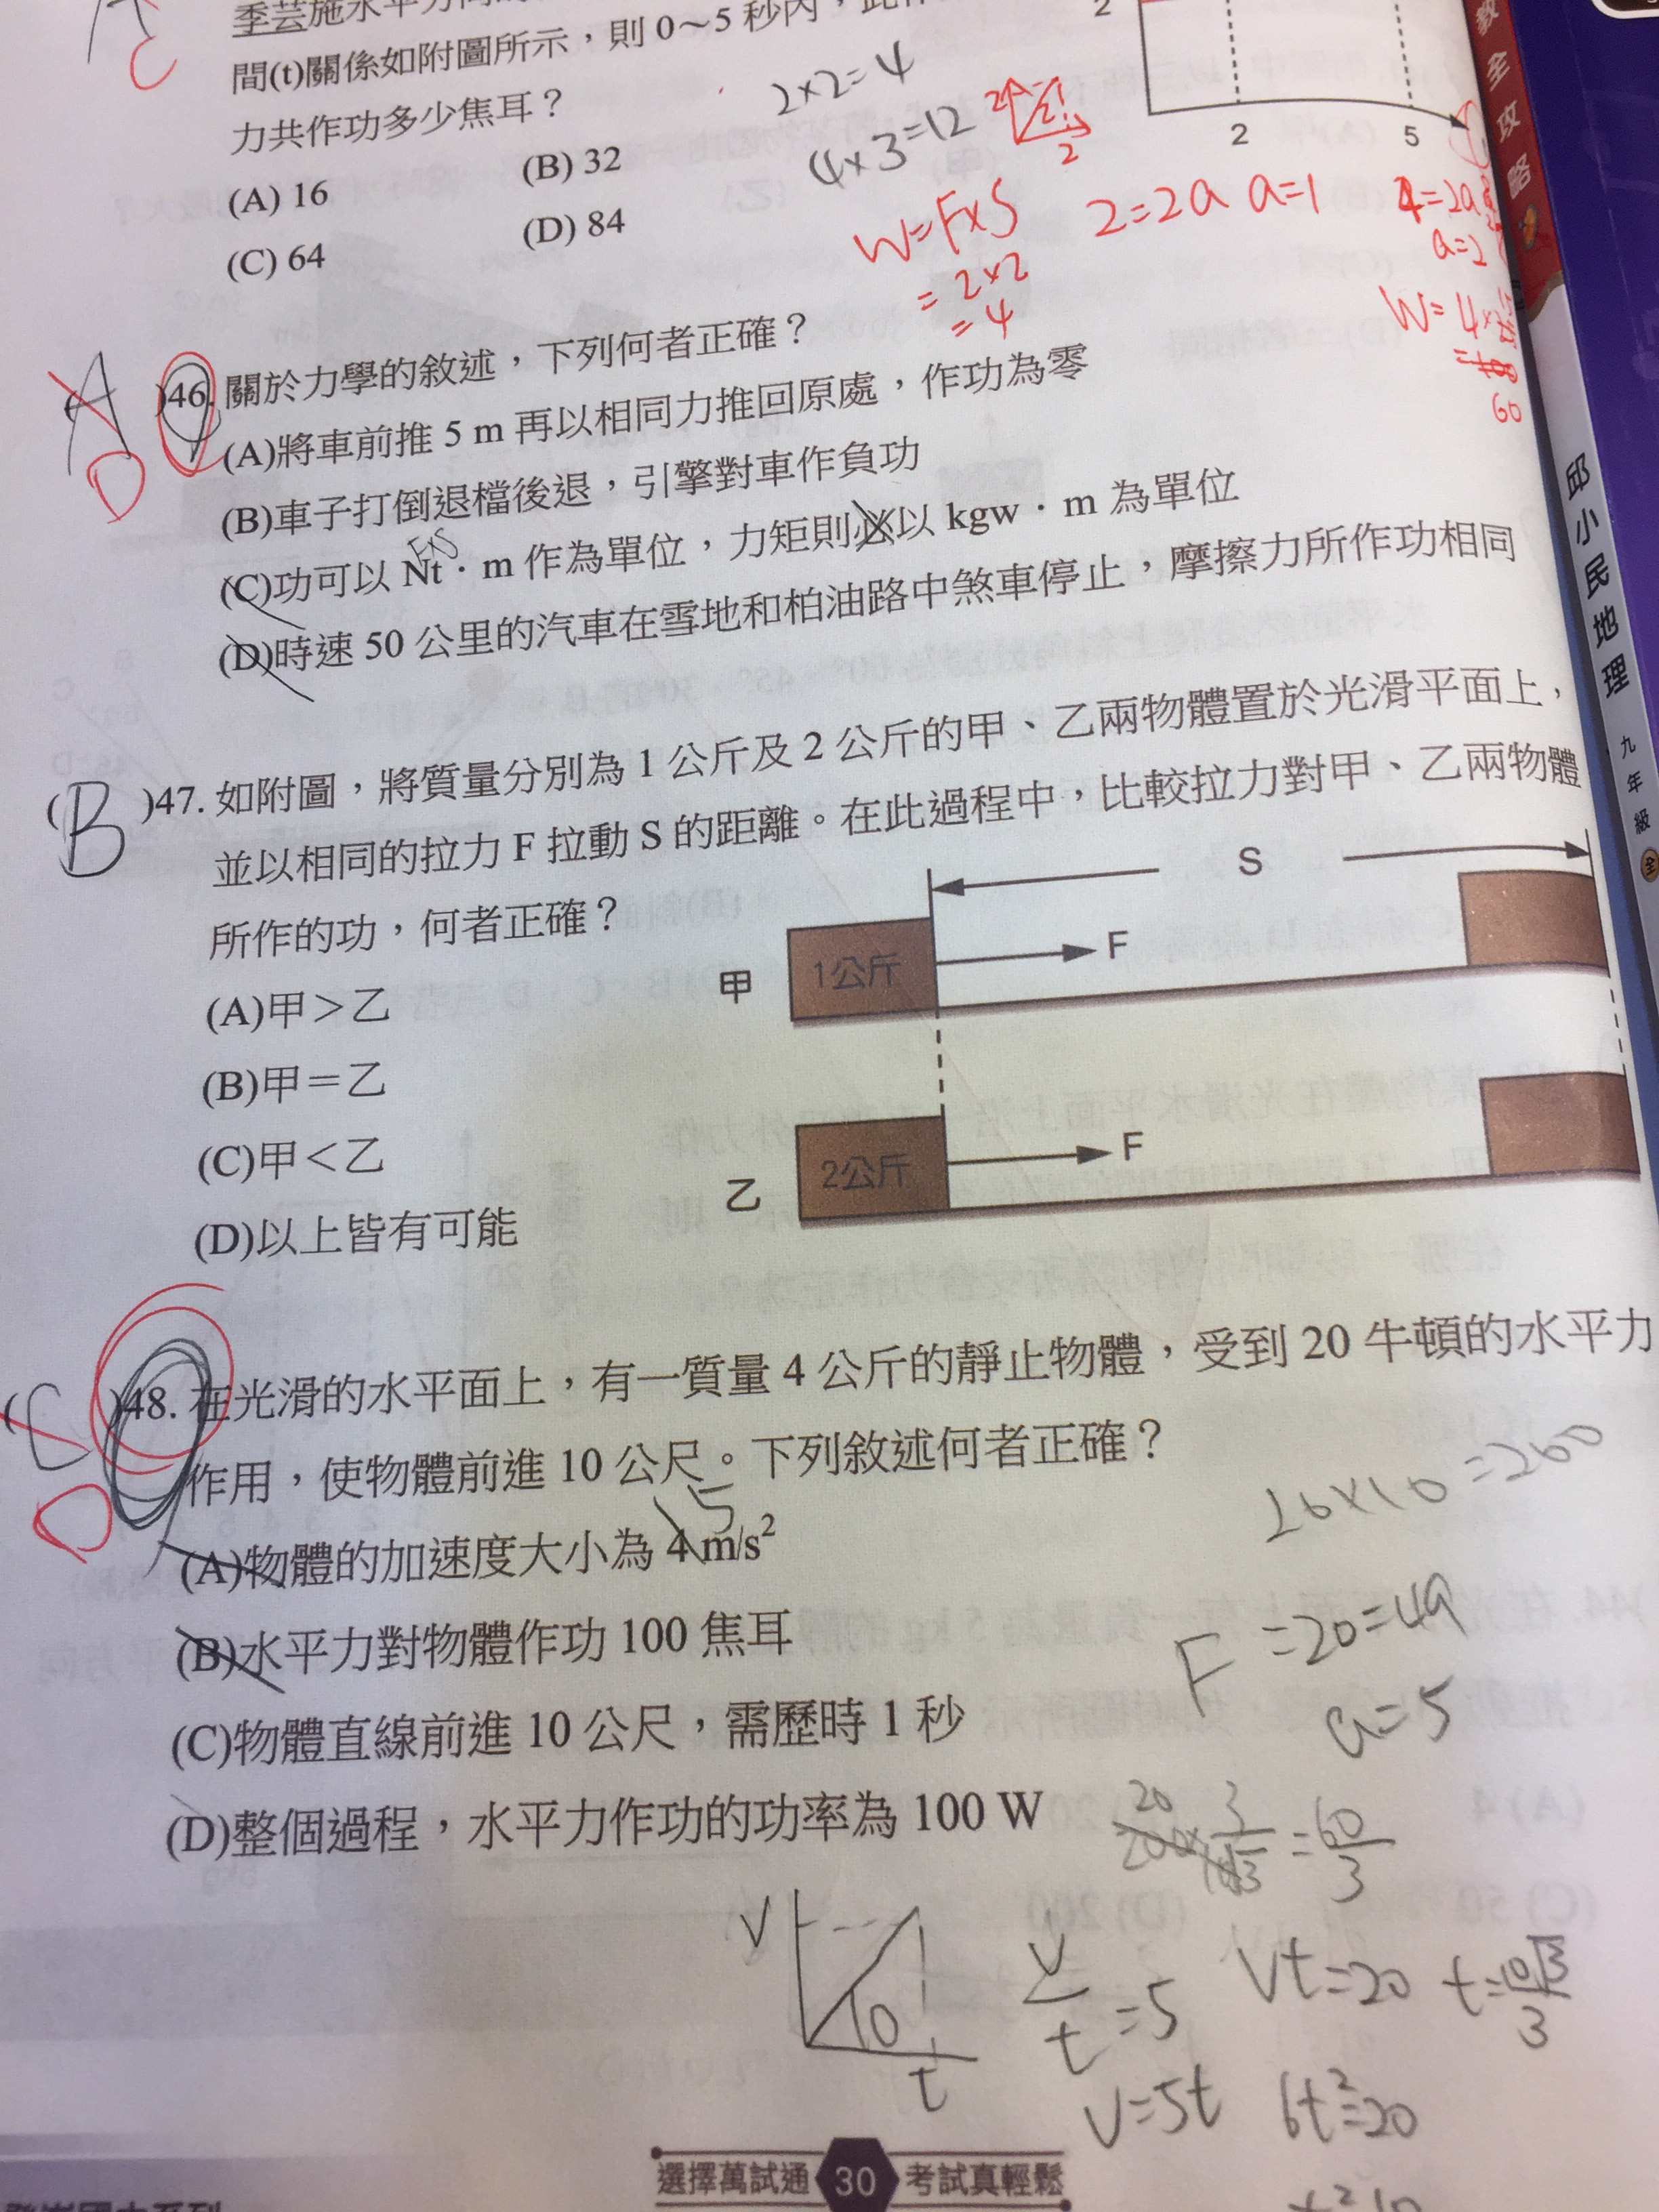 季芸施水平方向的
間(t)關係如附圖所示，則 0～5 秒內，此
力共作功多少焦耳？
(A) 16
(B) 32
(C) 64
(D) 84
2
2
5
C
2×2=4
4×3=12
2
2
W=F×S
=2×2
=4
2=2a a=1
4=2a
a=2
W=4×
60
A
D
)46. 關於力學的敘述，下列何者正確？
(A)將車前推 5 m 再以相同力推回原處，作功為零
(B)車子打倒退檔後退，引擎對車作負功
FS
(C)功可以 Nt・m 作為單位，力矩則必以 kgw・m 為單位
(D)時速 50 公里的汽車在雪地和柏油路中煞車停止，摩擦力所作功相同
(B )47. 如附圖，將質量分別為 1 公斤及 2 公斤的甲、乙兩物體置於光滑平面上，
並以相同的拉力 F 拉動 S 的距離。在此過程中，比較拉力對甲、乙兩物體
所作的功，何者正確？
(A)甲＞乙
(B)甲＝乙
(C)甲＜乙
(D)以上皆有可能
S
甲
1公斤
F
乙
2公斤
F
D
( )48. 在光滑的水平面上，有一質量 4 公斤的靜止物體，受到 20 牛頓的水平力
作用，使物體前進 10 公尺。下列敘述何者正確？
5
(A)物體的加速度大小為 4 m/s²
(B)水平力對物體作功 100 焦耳
(C)物體直線前進 10 公尺，需歷時 1 秒
(D)整個過程，水平力作功的功率為 100 W
20×10=200
F=20=4a
a=5
20
200×3/10√3=60/3
V
10
t
V/t=5
V=5t
Vt=20
t=10√3/3
6t²=20
選擇萬試通 30 考試真輕鬆
教全攻略
邱小民地理
九年級
全